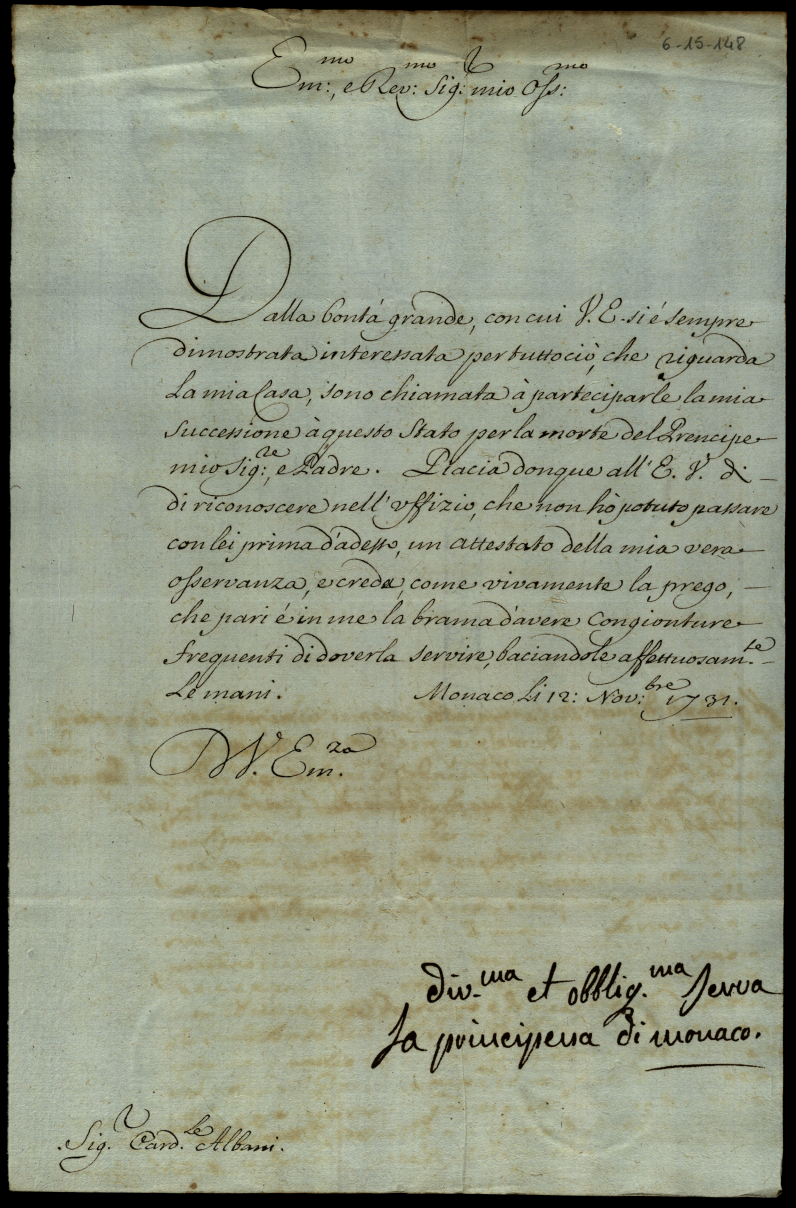 6-15-148
Em:mo, e Rev:mo Sig:r mio Oss:mo
Dalla bontá grande, con cui V. E. si é sempre
dimostrata interessata per tutto ciò, che riguarda
La mia Casa, sono chiamata à parteciparle la mia
Successione à questo Stato per la morte del Prencipe
mio Sig:re, e Padre. Piacia donque all' E. V. di -
di riconoscere nell' uffizio, che non hò potuto passare
con lei prima d'adesso, un attestato della mia vera
osservanza, e creda, come vivamente la prego, -
che pari é in me la brama d'avere Congionture
frequenti di doverla servire, baciandole affettuosam.te -
Le mani. Monaco Li 12: Nov:bre 1731.
D V. Em.za
div.ma et obblig.ma serva
la principessa di monaco.
Sig.r Card.le Albani.